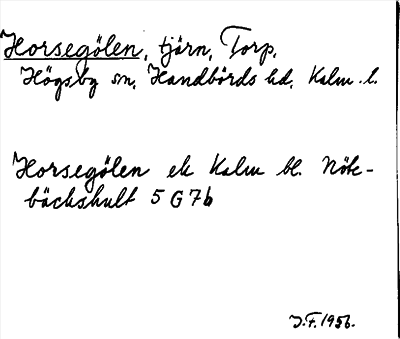 Horsegölen, tjärn, Torp,
Högsby sn, Handbörds hd, Kalm. l.
Horsegölen ek Kalm bl. Nöte-
bäckshult 5 G 7b
J.F. 1956.